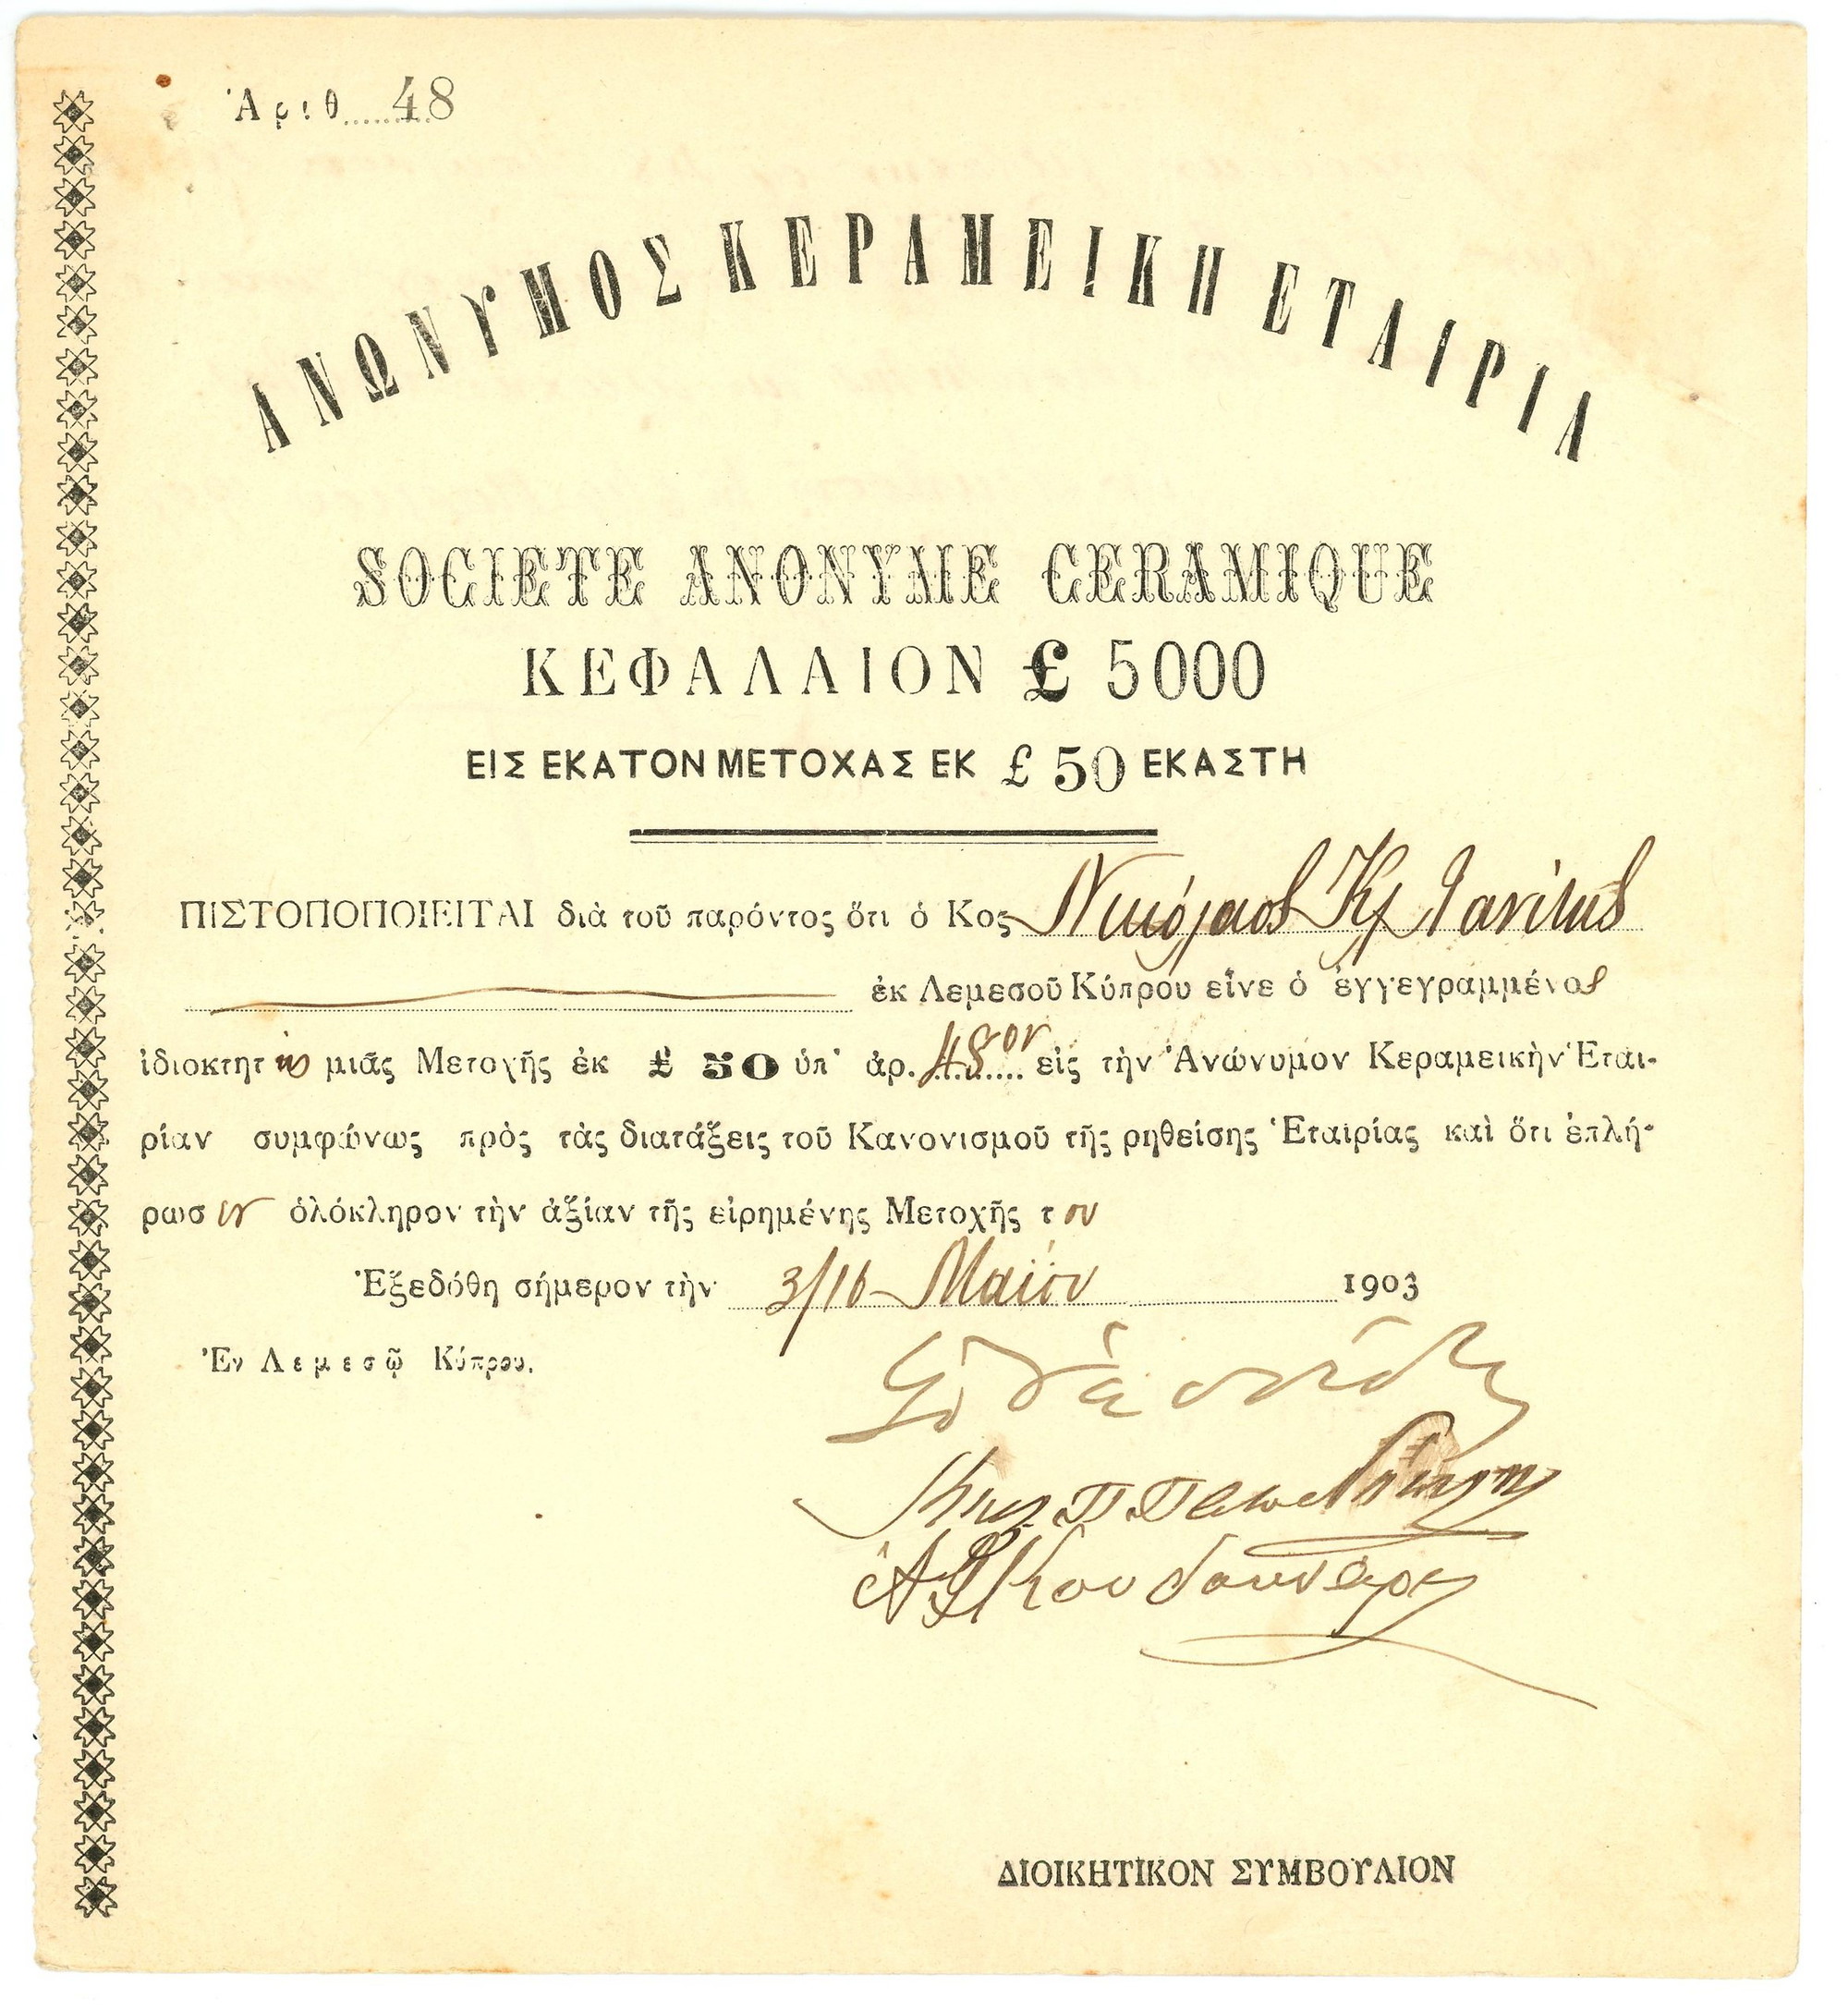 Ἀριθ. 48
ΑΝΩΝΥΜΟΣ ΚΕΡΑΜΕΙΚΗ ΕΤΑΙΡΙΑ
SOCIETE ANONYME CERAMIQUE
ΚΕΦΑΛΑΙΟΝ £ 5000
ΕΙΣ ΕΚΑΤΟΝ ΜΕΤΟΧΑΣ ΕΚ £ 50 ΕΚΑΣΤΗ
ΠΙΣΤΟΠΟΠΟΙΕΙΤΑΙ διὰ τοῦ παρόντος ὅτι ὁ Κος Νικόλαος Κλ Λανίτης
ἐκ Λεμεσοῦ Κύπρου εἶνε ὁ ἐγγεγραμμένος
ἰδιοκτητης μιᾶς Μετοχῆς ἐκ £ 50 ὑπ' ἀρ. 48ον εἰς τὴν Ἀνώνυμον Κεραμεικὴν Ἑται-
ρίαν συμφώνως πρὸς τὰς διατάξεις τοῦ Κανονισμοῦ τῆς ρηθείσης Ἑταιρίας καὶ ὅτι ἐπλή-
ρωσεν ὁλόκληρον τὴν ἀξίαν τῆς εἰρημένης Μετοχῆς του
Ἐξεδόθη σήμερον τὴν 3/16 Μαΐου 1903
Ἐν Λεμεσῷ Κύπρου.
ΔΙΟΙΚΗΤΙΚΟΝ ΣΥΜΒΟΥΛΙΟΝ